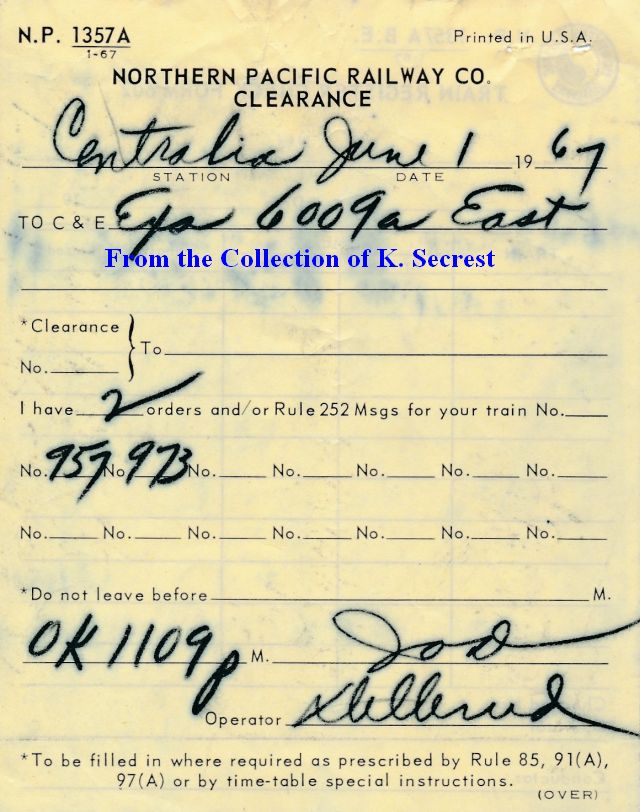 N.P. 1357A Printed in U.S.A.
1-67
NORTHERN PACIFIC RAILWAY CO.
CLEARANCE
Centralia June 1 1967
STATION DATE
TO C & E Exa 6009a East
From the Collection of K. Secrest
*Clearance
No. To
I have 2 orders and/or Rule 252 Msgs for your train No.
No. 957 No. 973 No. No. No. No. No.
No. No. No. No. No. No. No.
*Do not leave before M.
OK 1109p M. JOD
Operator
*To be filled in where required as prescribed by Rule 85, 91(A),
97(A) or by time-table special instructions.
(OVER)